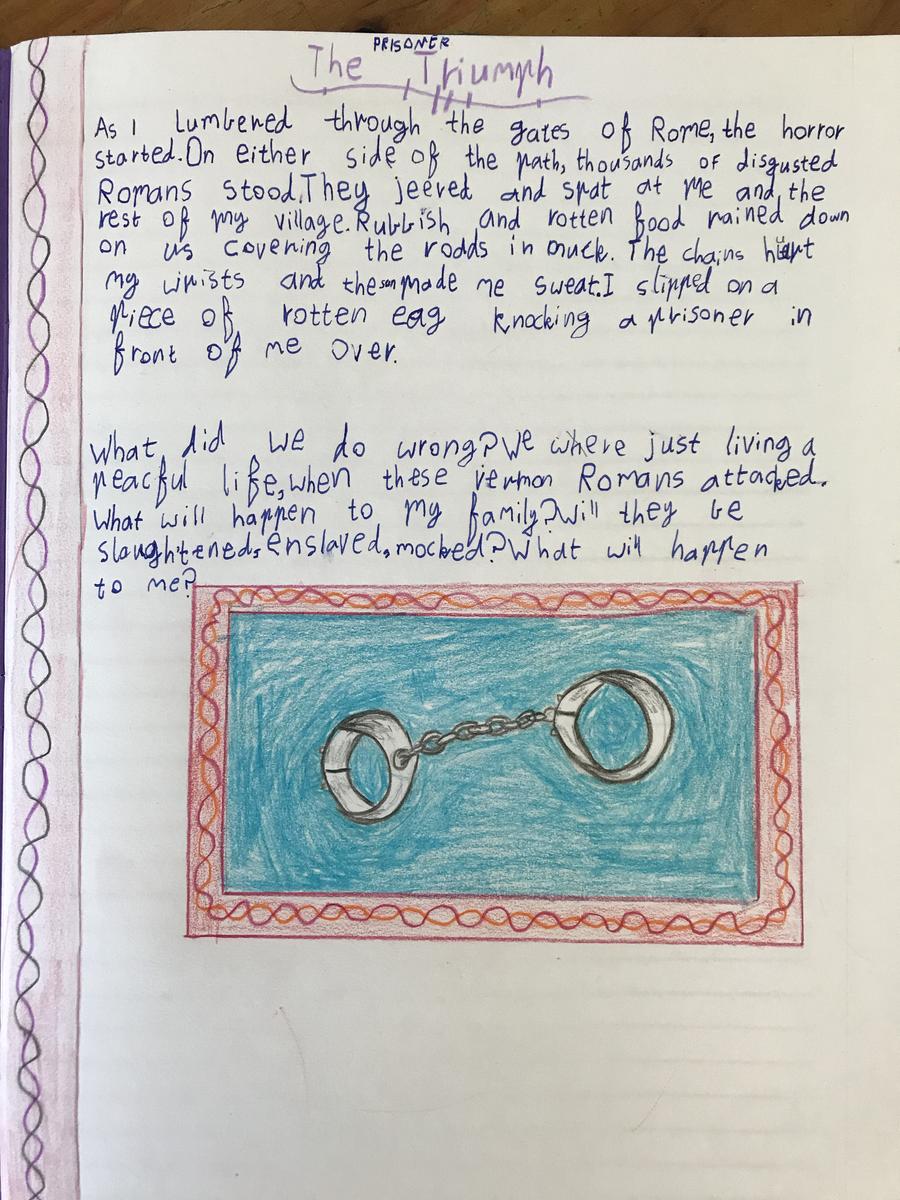 PRISONER
The Triumph
As I Lumbered through the gates of Rome, the horror
started. On either side of the path, thousands of disgusted
Romans stood. They jeered and spat at me and the
rest of my village. Rubbish and rotten food rained down
on us covering the rodds in muck. The chains hurt
my wrists and the sun made me sweat. I slipped on a
piece of rotten eag knocking a prisoner in
front of me over.
What did we do wrong? We where just living a
peacful life, when these vermon Romans attacked.
What will happen to my family? Will they be
slaughtened, enslaved, mocked? What will happen
to me?